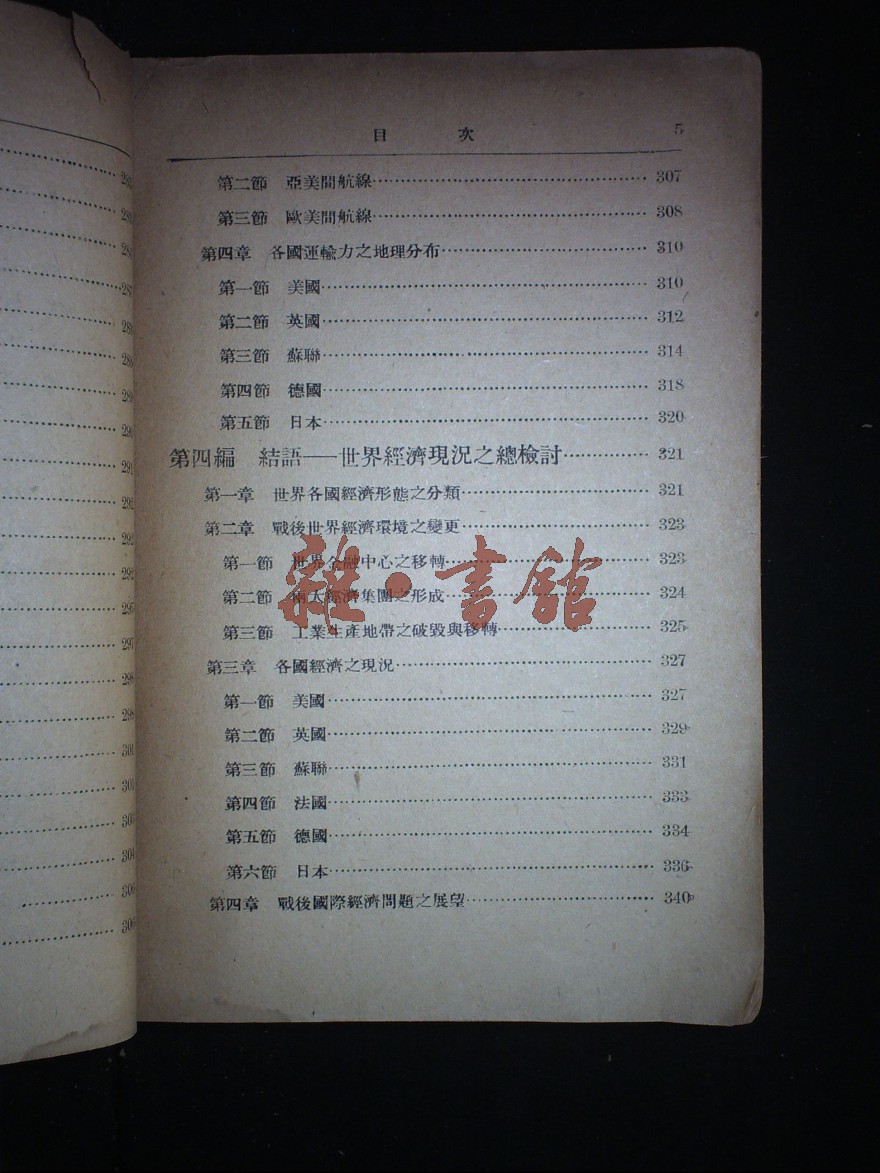 目 次 5
第二節 亞美間航線 307
第三節 歐美間航線 308
第四章 各國運輸力之地理分布 310
第一節 美國 310
第二節 英國 312
第三節 蘇聯 314
第四節 德國 318
第五節 日本 320
第四編 結語——世界經濟現況之總檢討 321
第一章 世界各國經濟形態之分類 321
第二章 戰後世界經濟環境之變更 323
第一節 世界金融中心之移轉 323
第二節 兩大經濟集團之形成 324
第三節 工業生產地帶之破毀與移轉 325
第三章 各國經濟之現況 327
第一節 美國 327
第二節 英國 329
第三節 蘇聯 331
第四節 法國 333
第五節 德國 334
第六節 日本 336
第四章 戰後國際經濟問題之展望 340
雜·書館